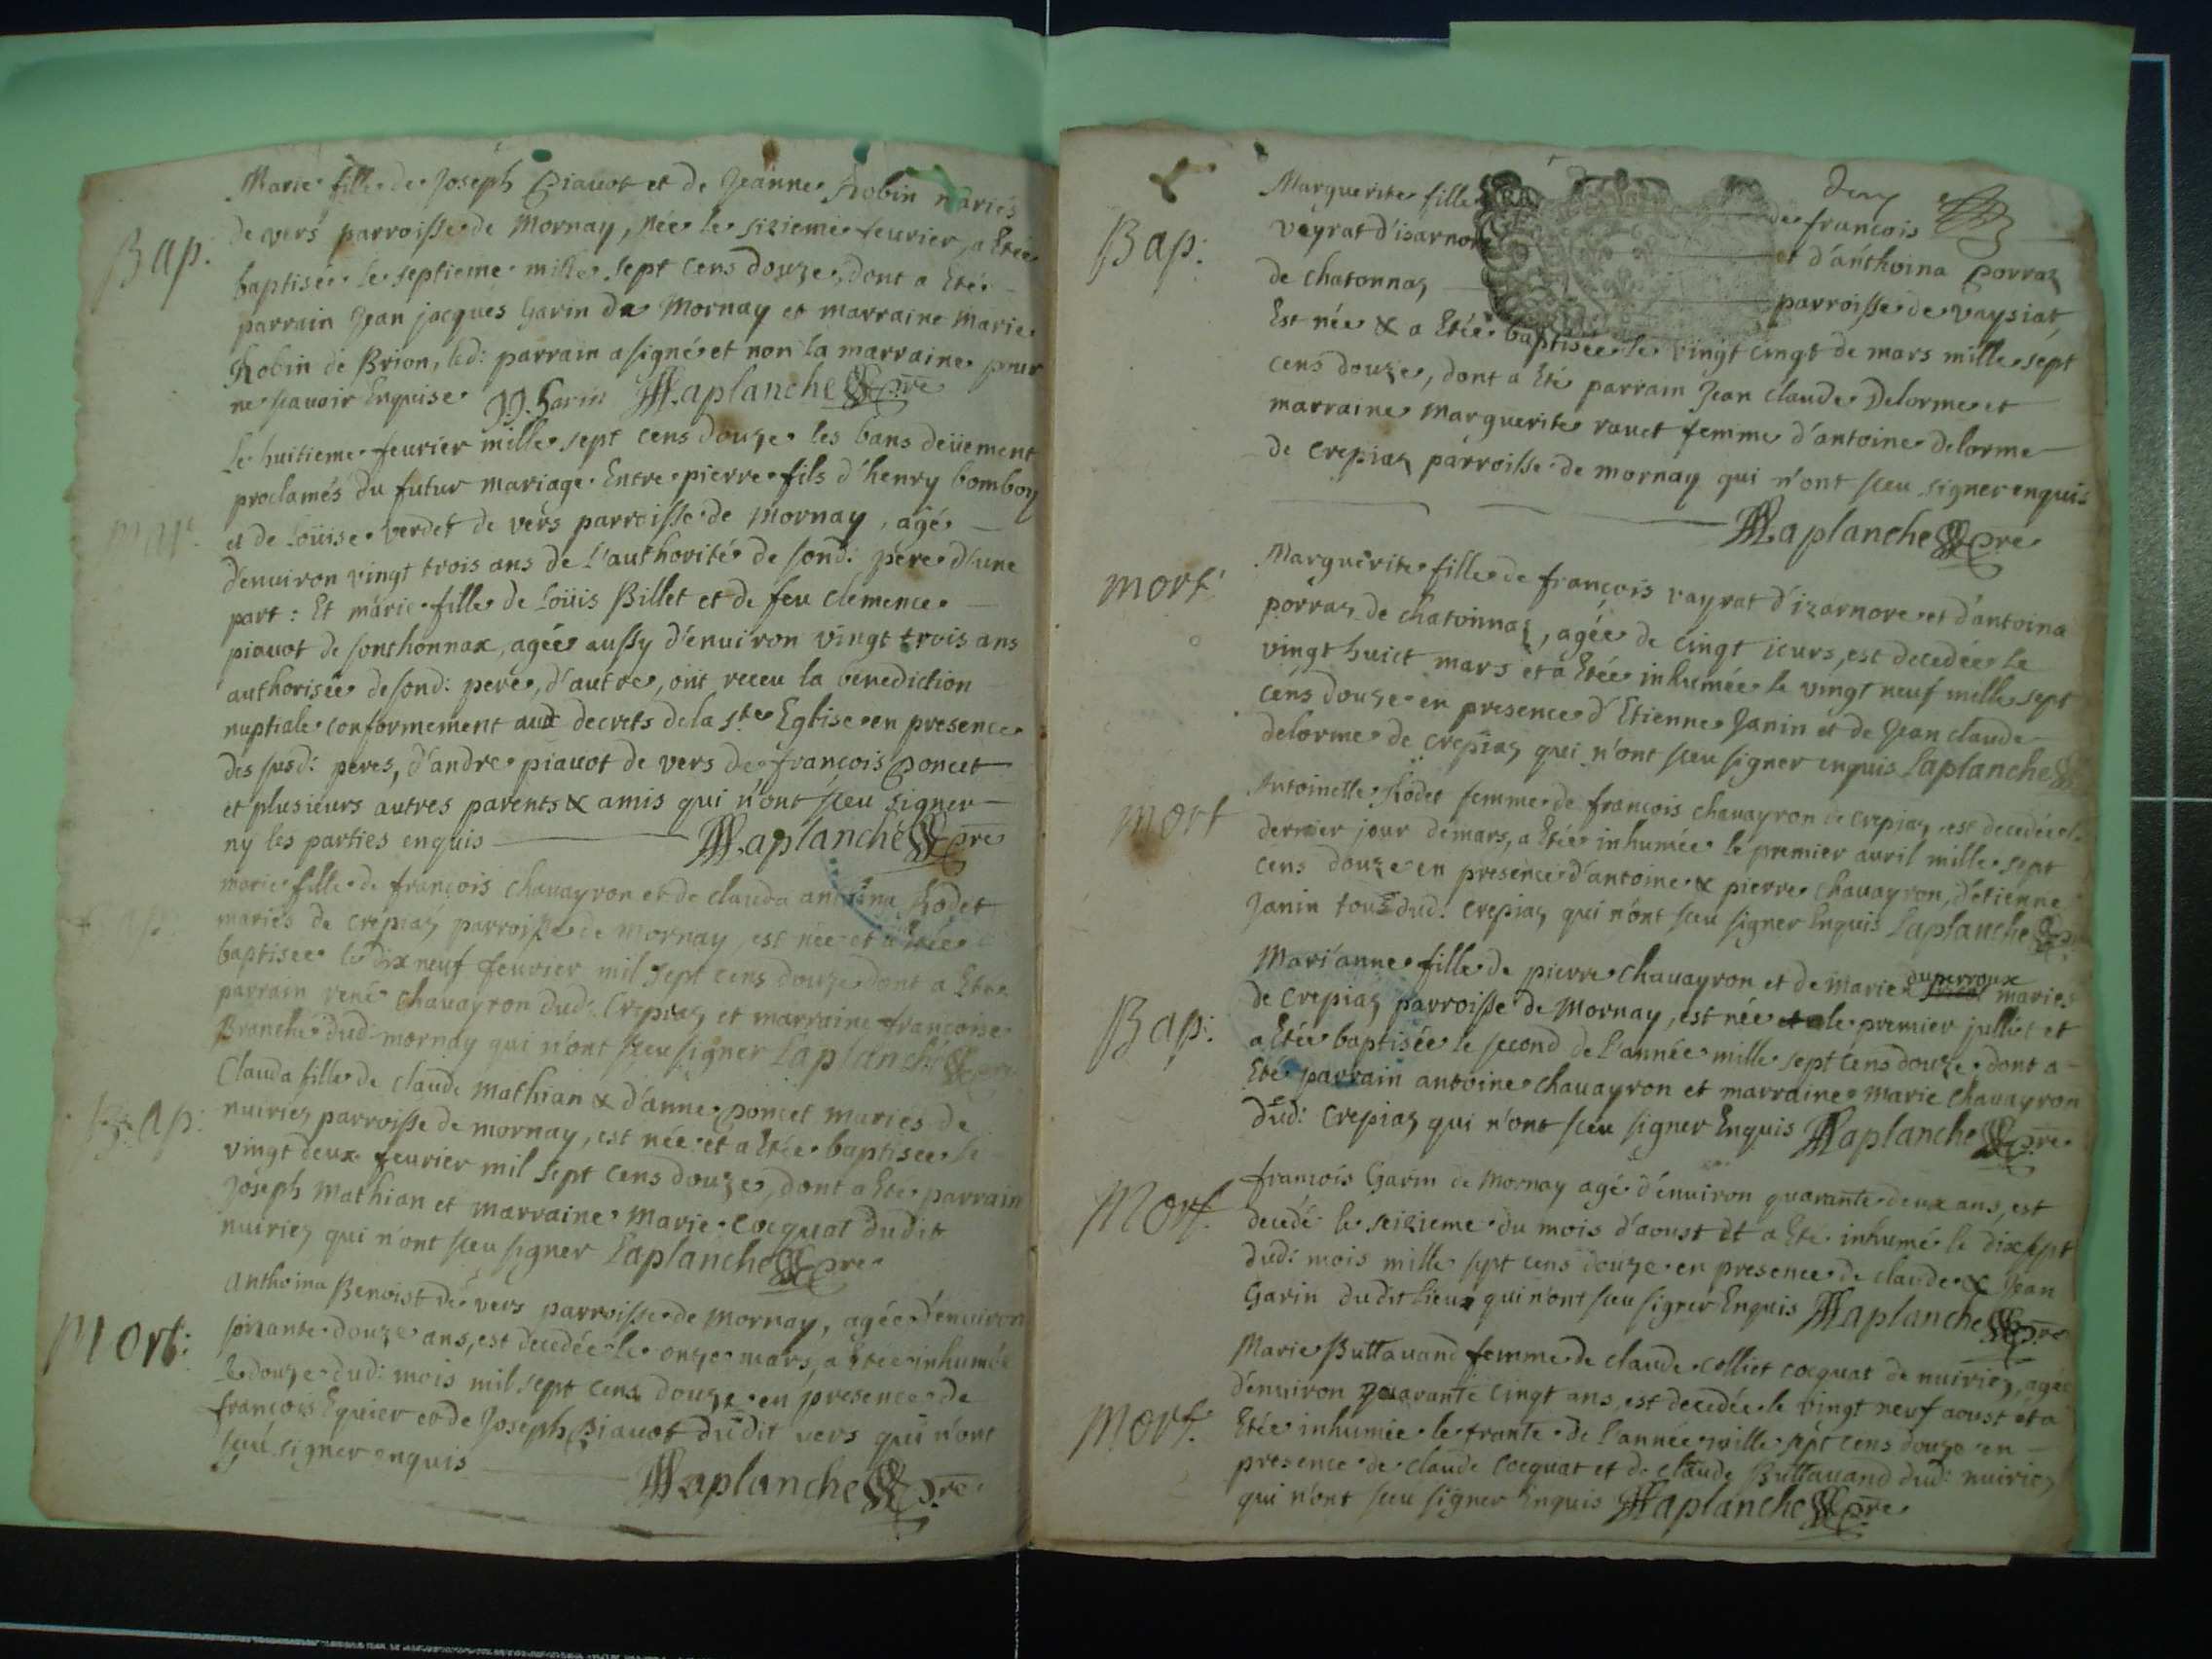 Marie fille de Joseph Piauot et de Jeanne Robin mariés
Bap:
de vers parroisse de Mornay, née le sizieme feurier, a Etée
baptisée le septieme mille sept cens douze, dont a Eté
parrain Jean jacques Garin de Mornay et marraine Marie
Robin de Brion, led: parrain a signé et non la marraine pour
ne scauoir Enquise J.J. Garin Laplanche pre
Le huitieme feurier mille sept cens douze les bans deüement
proclamés du futur mariage Entre pierre fils d'henry bomboy
Mar:
et de Loüise verdet de vers parroisse de Mornay, agé
d'enuiron vingt trois ans de l'authorité de sond: pere d'une
part: Et marie fille de Loüis Billet et de feu clemence
piauot de sonthonnax, agée aussy d'enuiron vingt trois ans
authorisée de sond: pere, d'autre, ont receu la benediction
nuptiale conformement aux decrets de la ste Eglise en presence
des susd: peres, d'andre piauot de vers de françois poncet
et plusieurs autres parents & amis qui n'ont sceu signer
ny les parties enquis Laplanche pre
marie fille de françois chauayron et de clauda antoina Rodet
Bap:
mariés de crepiaz parroisse de mornay, est née et a Etée
baptisee le dix neuf feurier mil sept cens douze dont a Eté
parrain rené chauayron dud: Crepiaz et marraine françoise
Branche dud: mornay qui n'ont sceu signer Laplanche pre
Clauda fille de claude Mathian & d'anne poncet mariés de
Bap:
nuiriez parroisse de mornay, est née et a Etée baptisee le
vingt deux feurier mil sept cens douze, dont a Eté parrain
Joseph Mathian et marraine Marie Cocquat dudit
nuiriez qui n'ont sceu signer Laplanche pre
Anthoina Benoist de vers parroisse de Mornay, agée d'enuiron
Mort:
soixante douze ans, est decedée le onze mars, a Etée inhumée
le douze dud: mois mil sept cens douze en presence de
françois Equier et de Joseph Piauot dudit vers qui n'ont
sceu signer enquis Laplanche pre
Marguerite fille de françois
Bap:
vayrat d'isarnore et d'anthoina porraz
de chatonnaz parroisse de vaysiat,
Est née & a Etée baptisée le vingt cingt de mars mille sept
cens douze, dont a Eté parrain Jean claude Delorme et
marraine Marguerite rauet femme d'antoine delorme
de crepiaz parroisse de mornay qui n'ont sceu signer enquis
Laplanche pre
Marguerite fille de françois vayrat d'izarnore et d'antoina
mort
porraz de chatonnaz, agée de cingt jours, est decedée le
vingt huict mars et a Etée inhumée le vingt neuf mille sept
cens douze en presence d'Etienne Janin et de Jean claude
delorme de crepiaz qui n'ont sceu signer enquis Laplanche
Antoinette Rodet femme de françois chauayron de crepiaz est decedée le
mort
dernier jour de mars, a Etée inhumée le premier auril mille sept
cens douze en presence d'antoine & pierre chauayron, d'etienne
Janin tous dud: crepiaz qui n'ont sceu signer Enquis Laplanche pre
Mari'anne fille de pierre chauayron et de marie duperroux mariés
de Crepiaz parroisse de Mornay, est née le premier julliet et
Bap:
a Etée baptisée le second de l'année mille sept cens douze dont a
Eté parrain antoine chauayron et marraine Marie chauayron
dud: Crepiaz qui n'ont sceu signer Enquis Laplanche pre
françois Garin de Mornay agé d'enuiron quarante deux ans, est
Mort.
decedé le seizieme du mois d'aoust et a Eté inhumé le dix sept
dud: mois mille sept cens douze en presence de claude & Jean
Garin dudit lieu qui n'ont sceu signer Enquis Laplanche pre
Marie Buttauand femme de claude colliet cocquat de nuiriez, agée
d'enuiron quarante cingt ans, est decedée le vingt neuf aoust et a
Mort.
Etée inhumée le trante de l'année mille sept cens douze en
presence de claude Cocquat et de claude Buttauand dud: nuiriez
qui n'ont sceu signer Enquis Laplanche pre